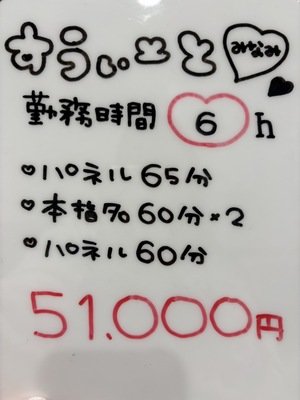 おらぃこと みなみ
勤務時間 6h
♡パネル 65分
♡本指名 60分×2
♡パネル 60分
51.000円